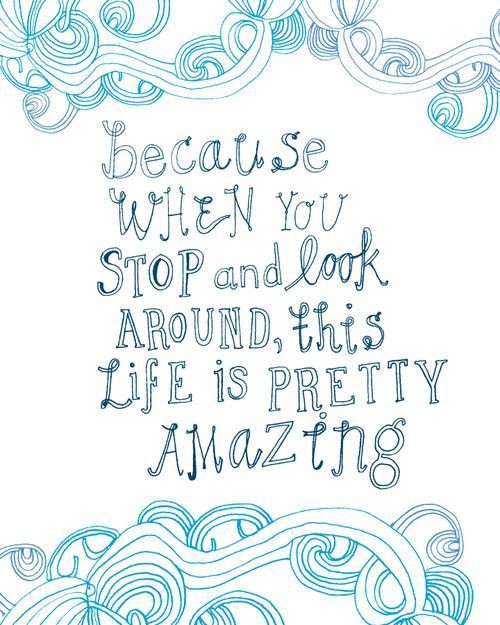 because
WHEN YOU
STOP and look
AROUND, this
LiFE is PRETTY
AMAZing